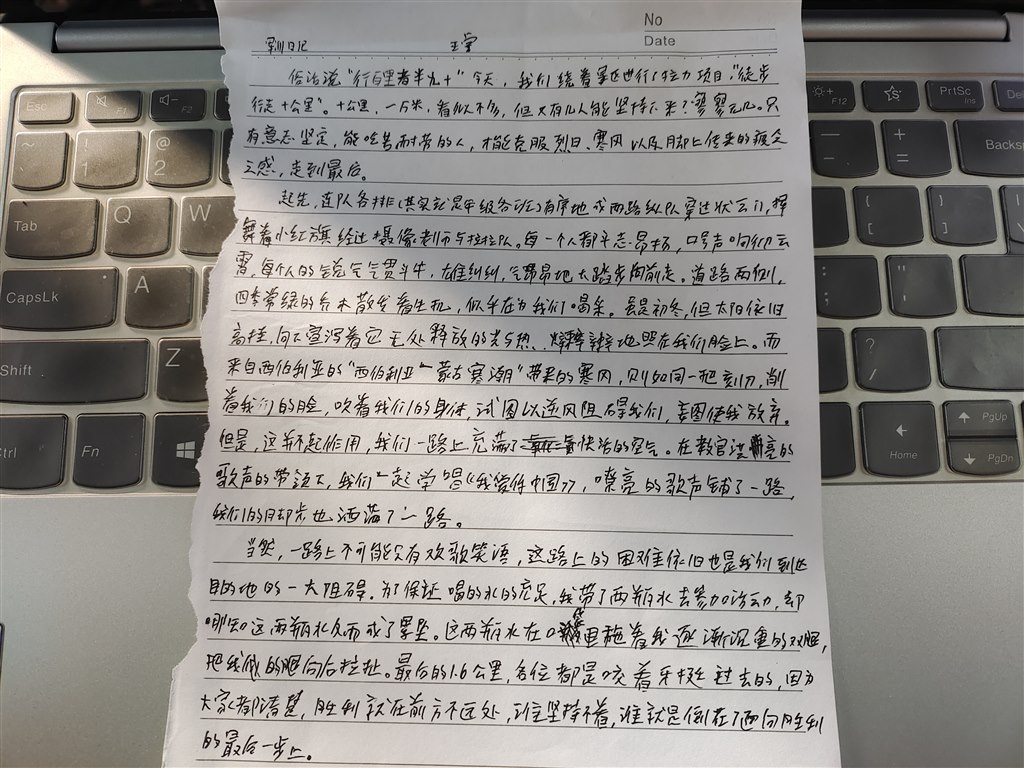 No
Date
军训日记 王莹
俗话说"行百里者半九十"今天，我们绕着军区进行了拉力项目："徒步
行走十公里"。十公里，一万米，看似不多，但又有几人能坚持下来？寥寥无几。只
有意志坚定，能吃苦耐劳的人，才能克服烈日、寒风以及脚上传来的疲乏
之感，走到最后。
起先，连队各排(其实就是年级各班)有序地成两路纵队穿过状元门，挥
舞着小红旗经过摄像老师与拉拉队。每一个人都斗志昂扬，口号声响彻云
霄，每个人的气势气贯斗牛，雄纠纠，气昂昂地大踏步向前走。道路两侧，
四季常绿的乔木散发着生机，似乎在为我们喝采。虽是初冬，但太阳依旧
高挂，向大宣泻着它无处释放的光与热，地照在我们脸上。而
来自西伯利亚的"西伯利亚—蒙古寒潮"带来的寒风，则如同一把刻刀，削
着我们的脸，吹着我们的身体，试图以逆风阻碍我们，妄图使我放弃。
但是，这并不起作用，我们一路上充满了快活的空气。在教官洪亮的
歌声的带领下，我们一起学唱《我爱你中国》，嘹亮的歌声铺了一路，
我们的脚步也洒满了一路。
当然，一路上不可能只有欢歌笑语，这路上的困难依旧也是我们到达
目的地的一大阻碍。为了保证喝的水的充足，我带了两瓶水去参加活动，却
哪知这两瓶水反而成了累坠。这两瓶水在口袋里拖着我逐渐沉重的双腿，
把我的腿向后拉扯。最后的1.6公里，各位都是咬着牙挺过去的，因为
大家都清楚，胜利就在前方不远处，谁坚持不着，谁就是倒在了通向胜利
的最后一步上。
Esc
F1
F2
F12
PrtSc
Ins
Del
1
2
@
Tab
Q
W
CapsLk
A
Shift
Z
Ctrl
Fn
Backsp
Home
PgUp
PgDn